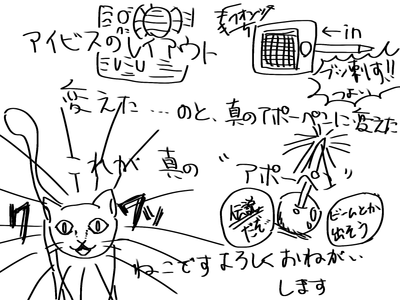 アイビスのレイアウト
←in
ブッ刺す!!
つよい
変えた…のと、真のアポーペンに変えた
これが真の
"アポーペン"
伝説だぞ
ビームとか出そう
クワッ
ねこですよろしくおねがい
します